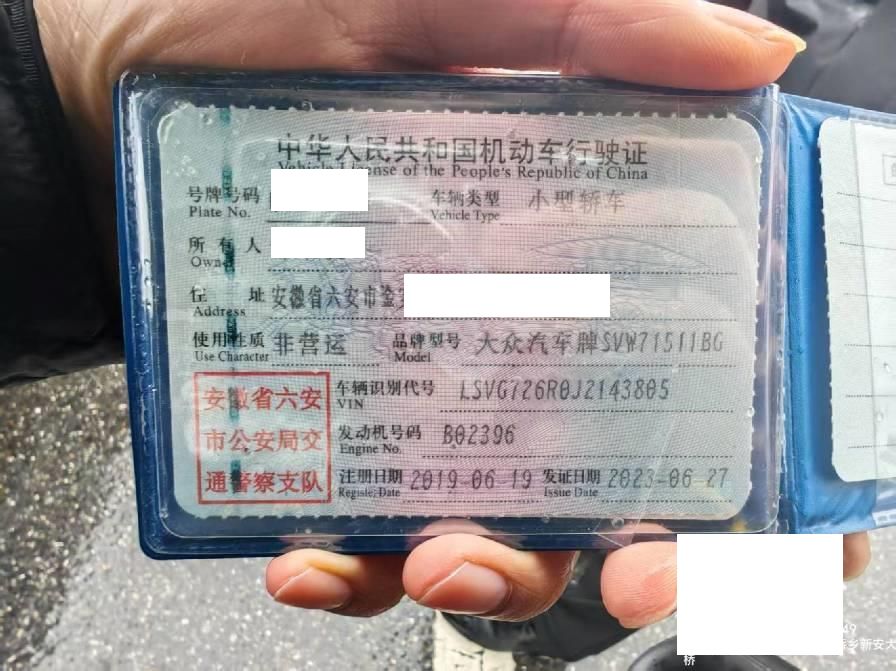 中华人民共和国机动车行驶证
Vehicle License of the People's Republic of China
号牌号码 车辆类型 小型轿车
Plate No. Vehicle Type
所有人
Owner
住址 安徽省六安市金
Address
使用性质 非营运 品牌型号 大众汽车牌SVW71511BG
Use Character Model
安徽省六安 车辆识别代号 LSVG726R0J2143805
VIN
市公安局交 发动机号码 B02396
Engine No.
通警察支队 注册日期 2019-06-19 发证日期 2023-06-27
Register Date Issue Date
49
乡新安大
桥